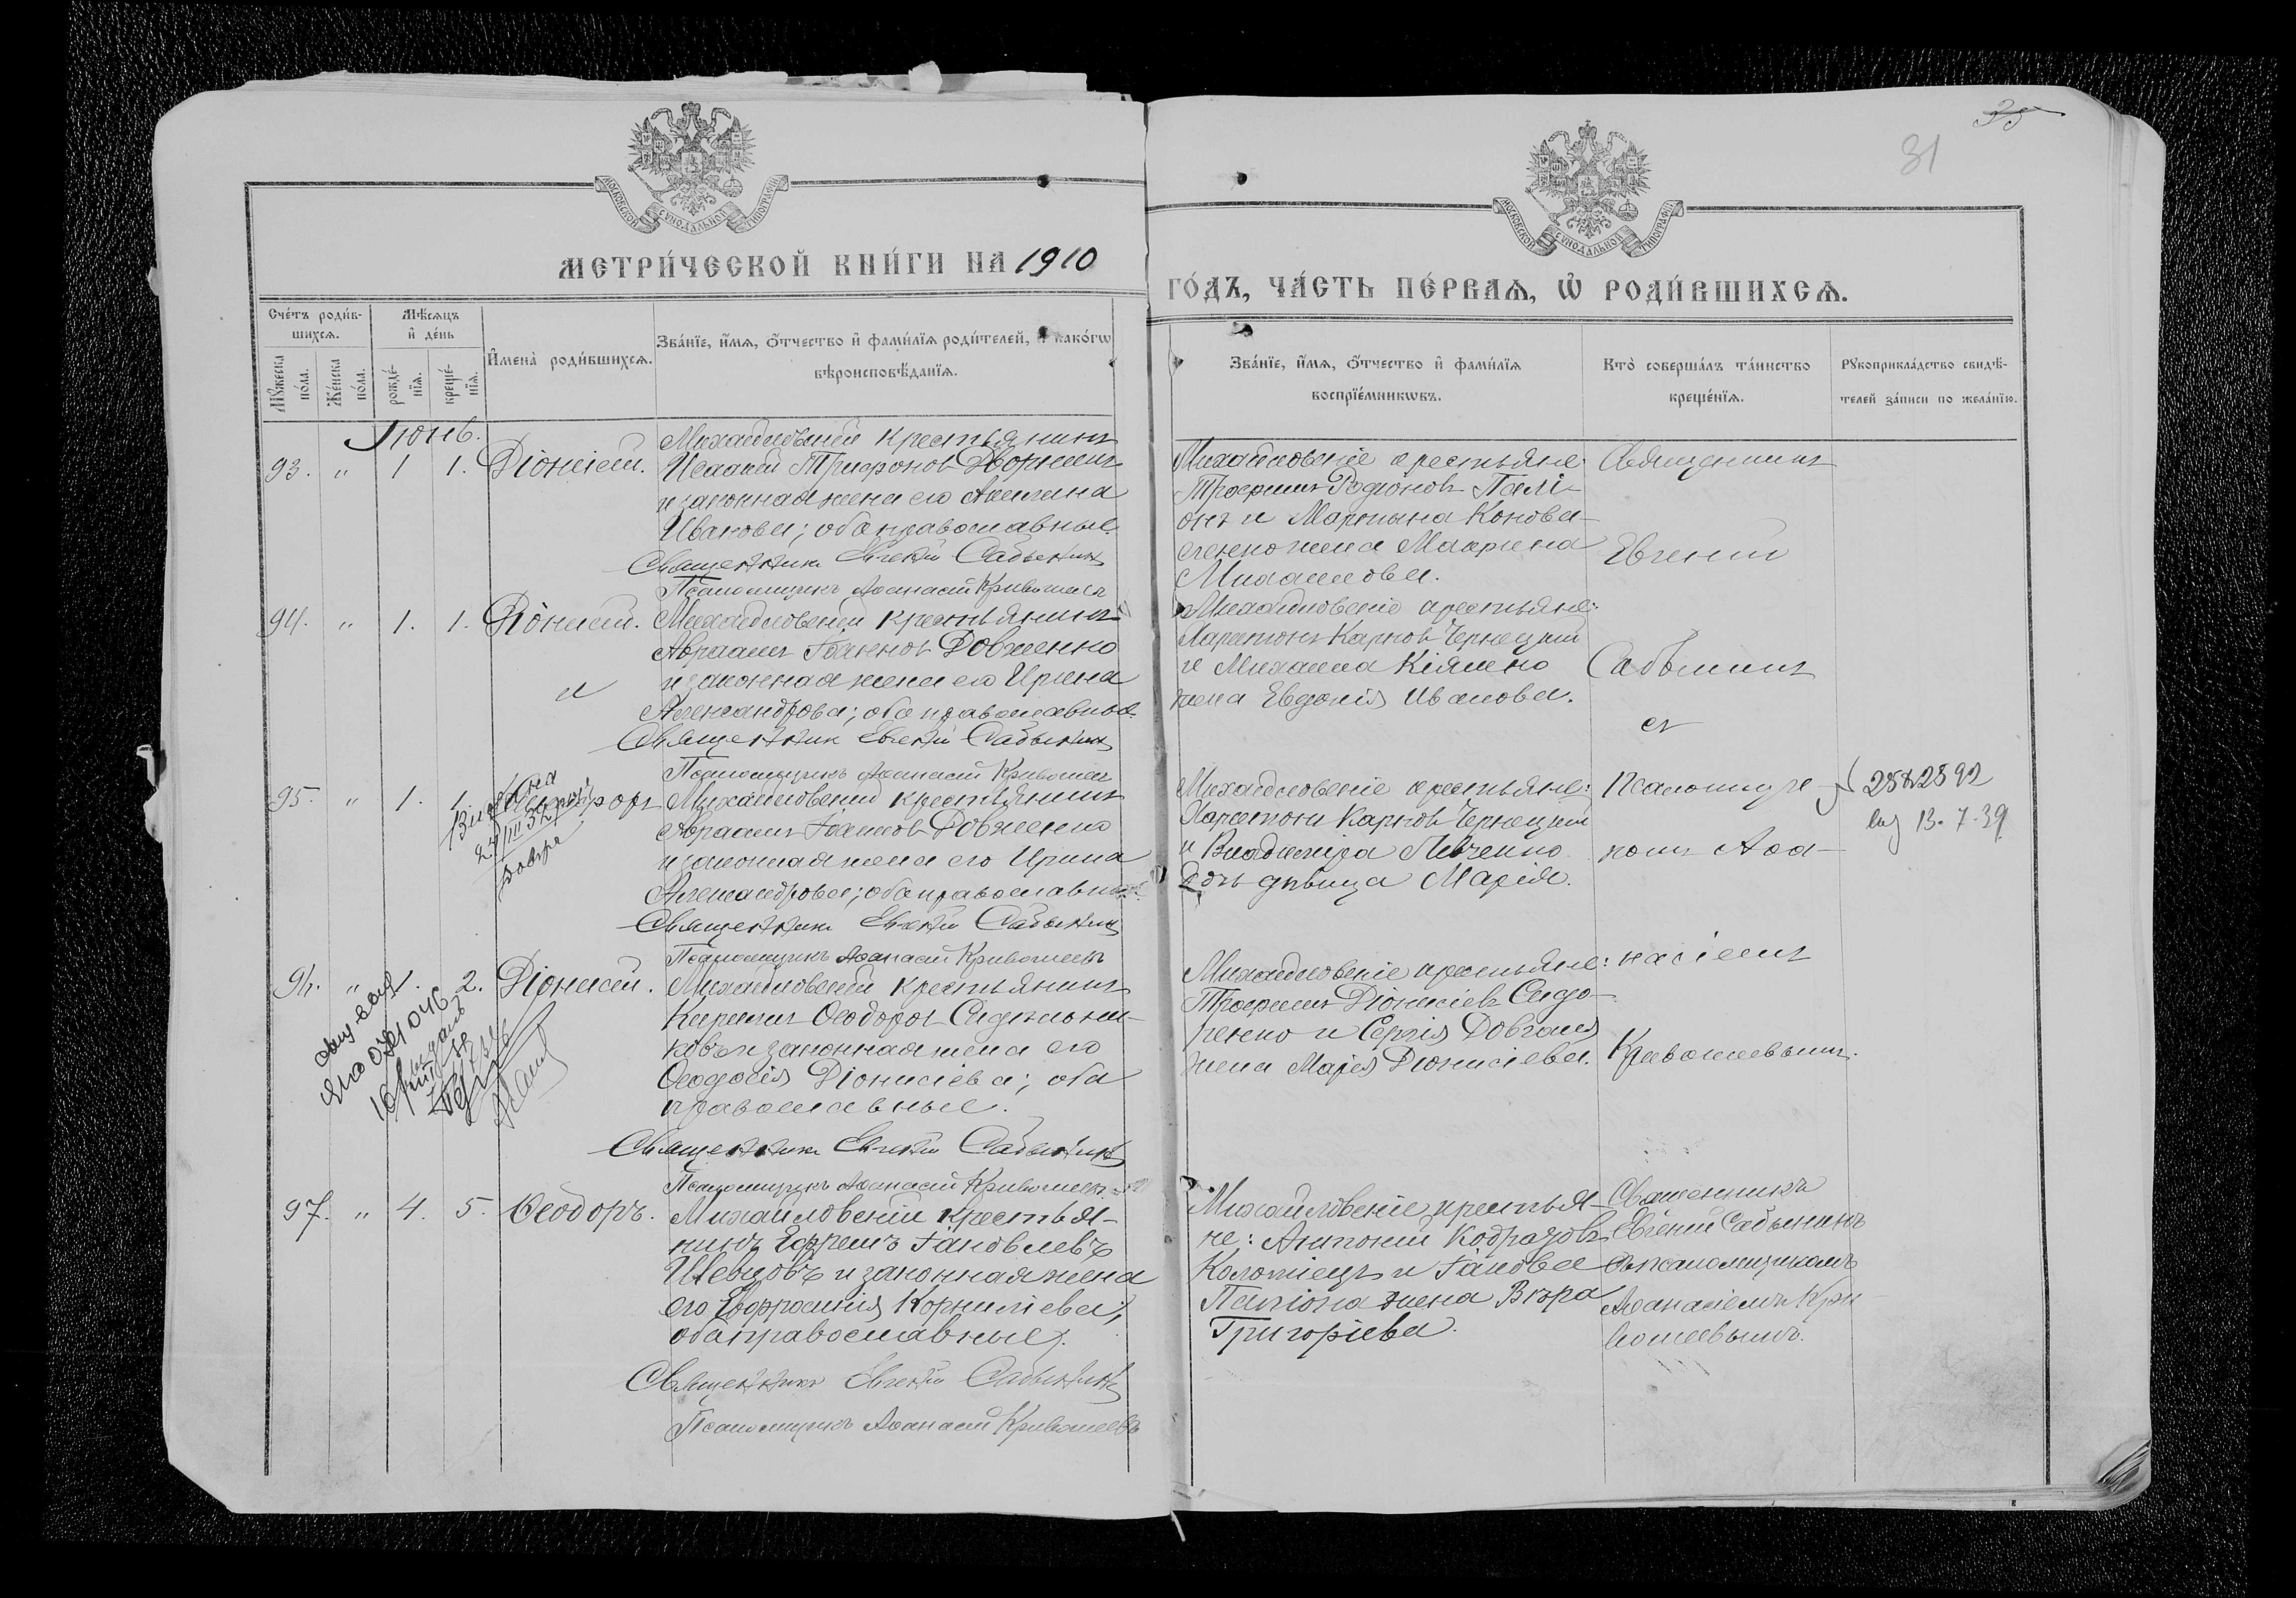 35
31
МОСКОВСКОЙ СѴНОДАЛЬНОЙ ТИПОГРАФІИ
МОСКОВСКОЙ СѴНОДАЛЬНОЙ ТИПОГРАФІИ
МЕТРИ́ЧЕСКОЙ КНИ́ГИ НА 1910
ГО́ДЪ, ЧА́СТЬ ПЕ́РВАѦ, Ѡ҆ РОДИ́ВШИХСѦ.
Сче́тъ роди́в-
шихсѧ.
Мꙋжеска по́ла.
Же́нска по́ла.
Мѣ́сѧцъ
и҆ де́нь
рожде́-
нїѧ.
креще́-
нїѧ.
И҆мена̀ роди́вшихсѧ.
Зва́нїе, и҆́мѧ, ѻ҆́тчество и҆ фами́лїѧ роди́телей, и҆ како́гѡ
вѣроисповѣ́данїѧ.
Зва́нїе, и҆́мѧ, ѻ҆́тчество и҆ фами́лїѧ
воспрїе́мникѡвъ.
Кто̀ соверша́лъ та́инство
креще́нїѧ.
Рꙋкоприкла́дство свидѣ́-
телей за́писи по жела́нїю.
Іюнь.
93. " 1 1. Діонисій.
Михайловскій крестьянинъ
Исаакій Трифоновъ Дворникъ
и законная жена его Акилина
Иванова; оба православные.
Священникъ Евгеній Сабынинъ
Псаломщикъ Аѳанасій Кривошеевъ
Михайловскіе крестьяне:
Трофимъ Родіоновъ Палі-
онъ и Мартына Конова-
ленко жена Марина
Михаилова.
Священникъ
Евгеній
94. " 1. 1. Діонисій.
и
Михайловскій крестьянинъ
Авраамъ Іоанновъ Довженко
и законная жена его Ирина
Александрова; оба православные.
Священникъ Евгеній Сабынинъ
Псаломщикъ Аѳанасій Кривошеевъ
Михайловскіе крестьяне:
Харитонъ Карповъ Чернецкій
и Михаила Кіяшко
жена Евдокія Иванова.
Сабынинъ
съ
95. " 1. 1.
Михайловскій крестьянинъ
Авраамъ Іоанновъ Довженко
и законная жена его Ирина
Александрова; оба православные.
Священникъ Евгеній Сабынинъ
Псаломщикъ Аѳанасій Кривошеевъ
Михайловскіе крестьяне:
Харитонъ Карповъ Чернецкій
и Владиміра Левченко
дочь дѣвица Марія.
псаломщи-
комъ Аѳа-
2582892
13-7-39
96. " 1. 2. Діонисій.
Михайловскій крестьянинъ
Кириллъ Ѳеодоровъ
и законная жена его
Ѳеодосія Діонисіева; оба
православные.
Священникъ Евгеній Сабынинъ
Псаломщикъ Аѳанасій Кривошеевъ
Михайловскіе крестьяне:
Трофимъ Діонисіевъ Сидо-
ренко и Сергія Довгаля
жена Марія Діонисіева.
насіемъ
Кривошеевымъ.
97. " 4. 5. Ѳеодоръ.
Михайловскій крестья-
нинъ Ефремъ Іаковлевъ
Шевцовъ и законная жена
его Евфросинія Корниліева;
оба православные.
Священникъ Евгеній Сабынинъ
Псаломщикъ Аѳанасій Кривошеевъ
Михайловскіе крестья-
не: Антоній Кодратовъ
Коломіецъ и Іакова
Паліона жена Вѣра
Григоріева.
Священникъ
Евгеній Сабынинъ
съ псаломщикомъ
Аѳанасіемъ Кри-
вошеевымъ.